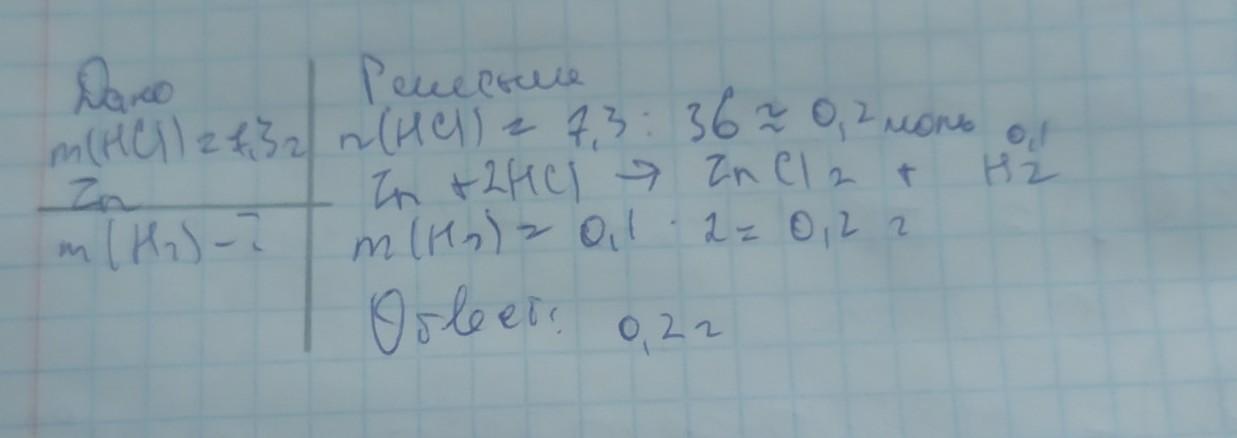 Дано
m(HCl) = 7,3г
Zn
m(H2) - ?
Решение
n(HCl) = 7,3 : 36 ≈ 0,2 моль
0,1
Zn + 2HCl → ZnCl2 + H2
m(H2) = 0,1 · 2 = 0,2 г
Ответ: 0,2г